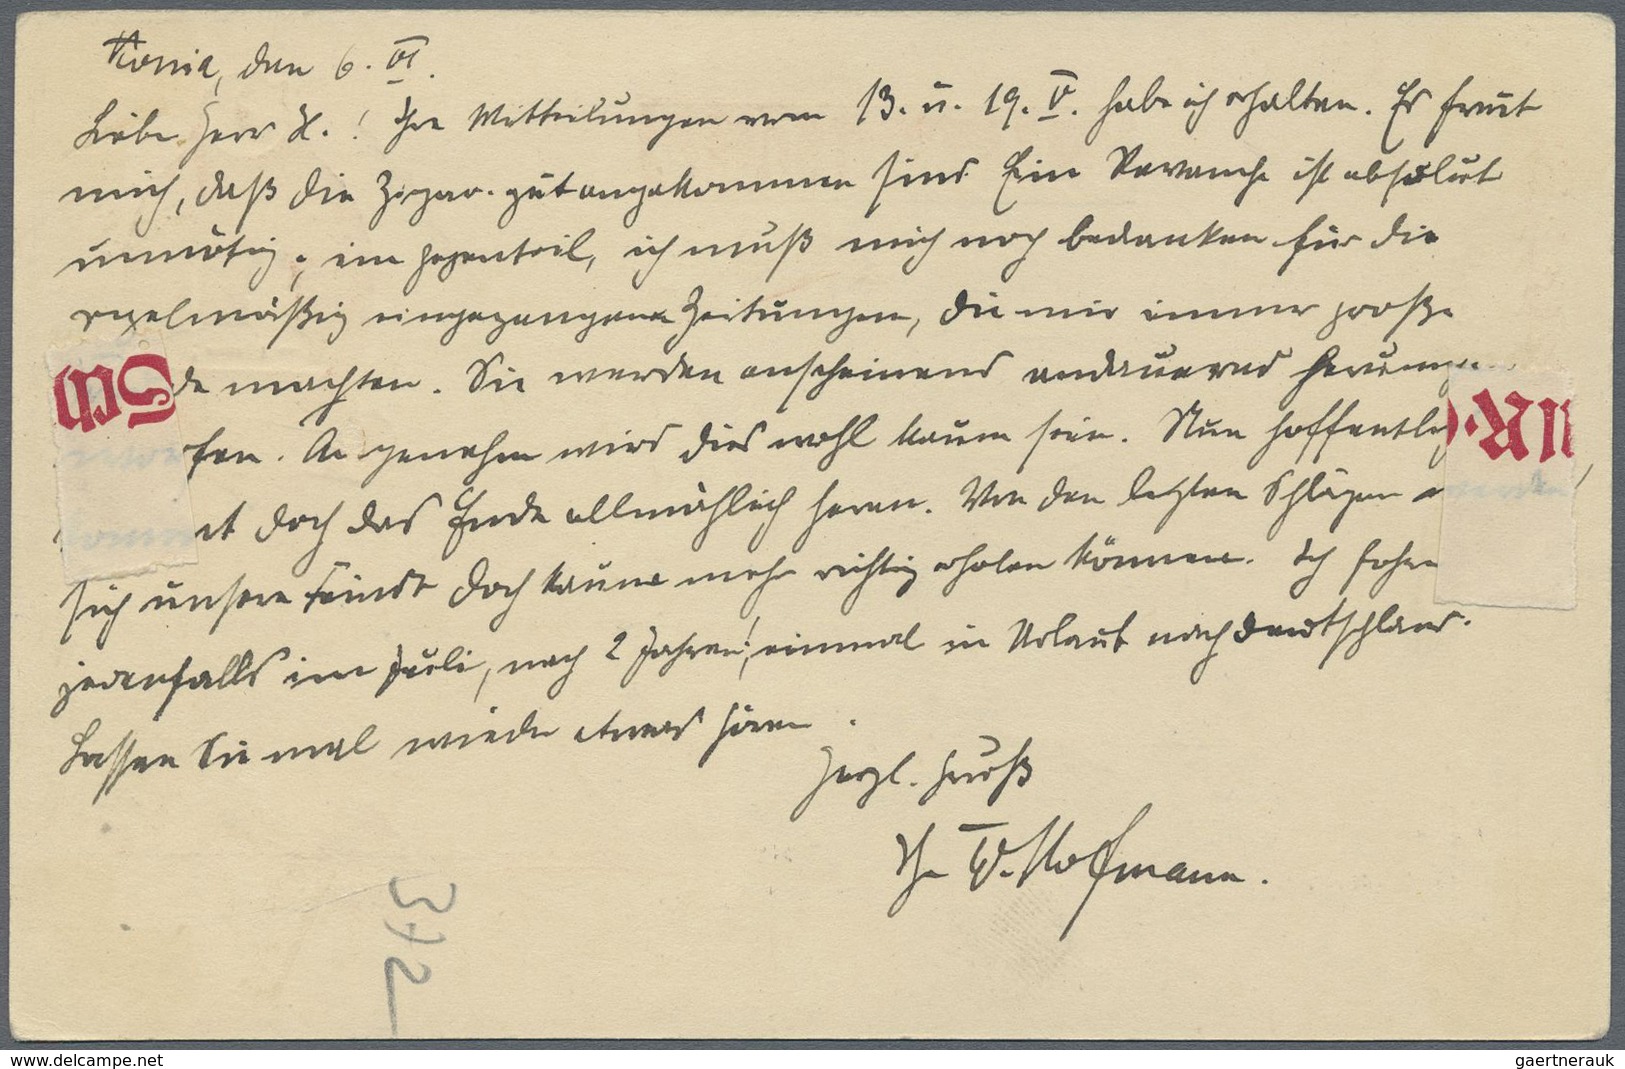 Konia, den 6. VI.
Lieber Herr H.! Ihre Mitteilungen vom 13. u. 19. V. habe ich erhalten. Es freut
mich, daß die Zigar. gut angekommen sind. Ein Revanche ist absolut
unnötig; im Gegenteil, ich muß mich noch bedanken für die
regelmäßig eingegangenen Zeitungen, die mir immer große
de machten. Sie werden anscheinend andauernd herumge
fen. Angenehm wird dies wohl kaum sein. Nun hoffentlich
t doch das Ende allmählich heran. Von den letzten Schlägen werden
sich unsere Feinde doch kaum mehr richtig erholen können. Ich fahre
jedenfalls im Juli, nach 2 Jahren!, einmal in Urlaub nach Deutschland.
Lassen Sie mal wieder etwas hören.
Herzl. Gruß
Ihr W. Hofmann.
372
www.delcampe.net
gaertnerauk